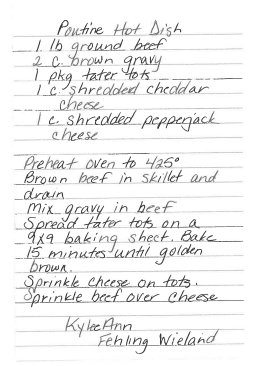 Poutine Hot Dish
1 lb ground beef
2 c. brown gravy
1 pkg tater tots
1 c. shredded cheddar
cheese
1 c. shredded pepperjack
cheese
Preheat oven to 425°
Brown beef in skillet and
drain
Mix gravy in beef
Spread tater tots on a
9x9 baking sheet. Bake
15 minutes until golden
brown.
Sprinkle cheese on tots.
Sprinkle beef over cheese
KyleeAnn
Fehling Wieland